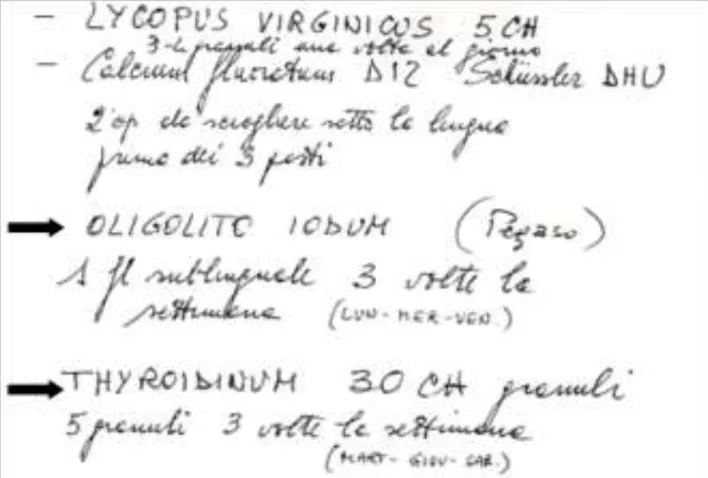 - LYCOPUS VIRGINICUS 5 CH
3-4 granuli una volta al giorno
- Calcium fluoratum D12 Schüssler DHU
2 cp da sciogliere sotto la lingua
prima dei 3 pasti
OLIGOLITO IODUM (Pegaso)
1 fl sublinguale 3 volte la
settimana (LUN-MER-VEN.)
THYROIDINUM 30 CH granuli
5 granuli 3 volte la settimana
(MART-GIOV-SAB.)